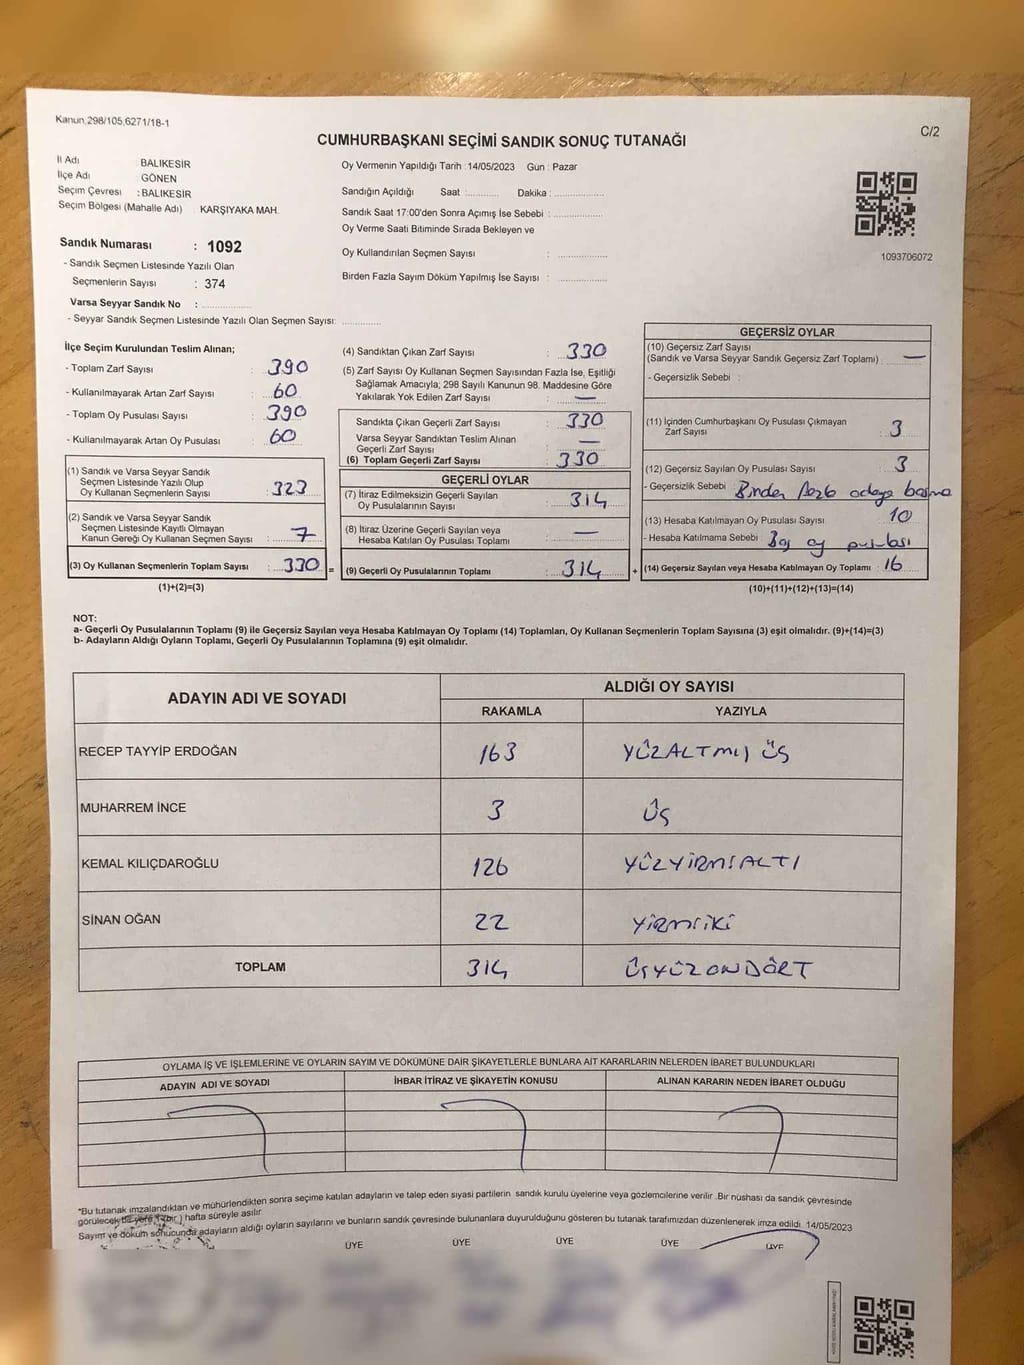 Kanun 298/105,6271/18-1
C/2
CUMHURBAŞKANI SEÇİMİ SANDIK SONUÇ TUTANAĞI
İl Adı BALIKESİR
İlçe Adı GÖNEN
Seçim Çevresi : BALIKESİR
Seçim Bölgesi (Mahalle Adı) KARŞIYAKA MAH.
Sandık Numarası : 1092
- Sandık Seçmen Listesinde Yazılı Olan
Seçmenlerin Sayısı : 374
Varsa Seyyar Sandık No :
- Seyyar Sandık Seçmen Listesinde Yazılı Olan Seçmen Sayısı:
Oy Vermenin Yapıldığı Tarih : 14/05/2023 Gün : Pazar
Sandığın Açıldığı Saat : Dakika :
Sandık Saat 17:00'den Sonra Açımış İse Sebebi :
Oy Verme Saati Bitiminde Sırada Bekleyen ve
Oy Kullandırılan Seçmen Sayısı :
Birden Fazla Sayım Döküm Yapılmış İse Sayısı :
1093706072
İlçe Seçim Kurulundan Teslim Alınan;
- Toplam Zarf Sayısı : 390
- Kullanılmayarak Artan Zarf Sayısı : 60
- Toplam Oy Pusulası Sayısı : 390
- Kullanılmayarak Artan Oy Pusulası : 60
(1) Sandık ve Varsa Seyyar Sandık
Seçmen Listesinde Yazılı Olup
Oy Kullanan Seçmenlerin Sayısı : 323
(2) Sandık ve Varsa Seyyar Sandık
Seçmen Listesinde Kayıtlı Olmayan
Kanun Gereği Oy Kullanan Seçmen Sayısı : 7
(3) Oy Kullanan Seçmenlerin Toplam Sayısı : 330 =
(1)+(2)=(3)
(4) Sandıktan Çıkan Zarf Sayısı : 330
(5) Zarf Sayısı Oy Kullanan Seçmen Sayısından Fazla İse, Eşitliği
Sağlamak Amacıyla; 298 Sayılı Kanunun 98. Maddesine Göre
Yakılarak Yok Edilen Zarf Sayısı : —
Sandıkta Çıkan Geçerli Zarf Sayısı : 330
Varsa Seyyar Sandıktan Teslim Alınan
Geçerli Zarf Sayısı : —
(6) Toplam Geçerli Zarf Sayısı : 330
GEÇERLİ OYLAR
(7) İtiraz Edilmeksizin Geçerli Sayılan
Oy Pusulalarının Sayısı : 314
(8) İtiraz Üzerine Geçerli Sayılan veya
Hesaba Katılan Oy Pusulası Toplamı : —
(9) Geçerli Oy Pusulalarının Toplamı : 314 +
GEÇERSİZ OYLAR
(10) Geçersiz Zarf Sayısı
(Sandık ve Varsa Seyyar Sandık Geçersiz Zarf Toplamı) : —
- Geçersizlik Sebebi :
(11) İçinden Cumhurbaşkanı Oy Pusulası Çıkmayan
Zarf Sayısı : 3
(12) Geçersiz Sayılan Oy Pusulası Sayısı : 3
- Geçersizlik Sebebi Birden fazla adaya basma
(13) Hesaba Katılmayan Oy Pusulası Sayısı 10
- Hesaba Katılmama Sebebi Boş oy pusulası
(14) Geçersiz Sayılan veya Hesaba Katılmayan Oy Toplamı : 16
(10)+(11)+(12)+(13)=(14)
NOT:
a- Geçerli Oy Pusulalarının Toplamı (9) ile Geçersiz Sayılan veya Hesaba Katılmayan Oy Toplamı (14) Toplamları, Oy Kullanan Seçmenlerin Toplam Sayısına (3) eşit olmalıdır. (9)+(14)=(3)
b- Adayların Aldığı Oyların Toplamı, Geçerli Oy Pusulalarının Toplamına (9) eşit olmalıdır.
ADAYIN ADI VE SOYADI ALDIĞI OY SAYISI
RAKAMLA YAZIYLA
RECEP TAYYİP ERDOĞAN 163 YÜZALTMIŞ ÜÇ
MUHARREM İNCE 3 ÜÇ
KEMAL KILIÇDAROĞLU 126 YÜZYİRMİALTI
SİNAN OĞAN 22 YİRMİİKİ
TOPLAM 314 ÜÇYÜZONDÖRT
OYLAMA İŞ VE İŞLEMLERİNE VE OYLARIN SAYIM VE DÖKÜMÜNE DAİR ŞİKAYETLERLE BUNLARA AİT KARARLARIN NELERDEN İBARET BULUNDUKLARI
ADAYIN ADI VE SOYADI İHBAR İTİRAZ VE ŞİKAYETİN KONUSU ALINAN KARARIN NEDEN İBARET OLDUĞU
*Bu tutanak imzalandıktan ve mühürlendikten sonra seçime katılan adayların ve talep eden siyasi partilerin sandık kurulu üyelerine veya gözlemcilerine verilir .Bir nüshası da sandık çevresinde
görülecek bir yere 1 (bir ) hafta süreyle asılır.
Sayım ve döküm sonucunda adayların aldığı oyların sayılarını ve bunların sandık çevresinde bulunanlara duyurulduğunu gösteren bu tutanak tarafımızdan düzenlenerek imza edildi. 14/05/2023
ÜYE ÜYE ÜYE ÜYE ÜYE